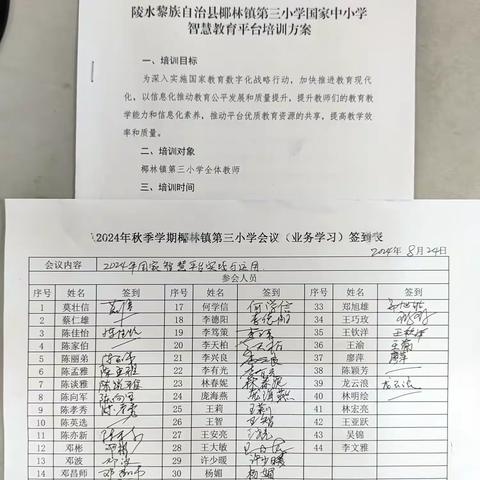 陵水黎族自治县椰林镇第三小学国家中小学
智慧教育平台培训方案
一、培训目标
为深入实施国家教育数字化战略行动，加快推进教育现代
化，以信息化推动教育公平发展和质量提升，提升教师们的教育教
学能力和信息化素养，推动平台优质教育资源的共享，提高教学效
率和质量。
二、培训对象
椰林镇第三小学全体教师
三、培训时间
2024年秋季学期椰林镇第三小学会议（业务学习）签到表
2024年 8月24日
会议内容 2024年国家智慧平台实践与运用
参会人员
序号 姓名 签到 序号 姓名 签到 序号 姓名 签到
1 莫壮信 17 何学信 何学信 33 郑旭雄
2 蔡仁雄 18 李德阳 34 王巧玫
3 陈佳怡 陈佳怡 19 李笃策 35 王钦洋
4 陈家伯 20 李天柏 36 王渝 王渝
5 陈丽弟 21 李兴良 37 廖萍 廖萍
6 陈孟雅 陈孟雅 22 李有光 38 陈颖芳
7 陈谈雅 23 林春妮 39 龙云浪 龙云浪
8 陈向军 陈向军 24 庞海燕 庞海燕 40 林明绘
9 陈孝秀 25 王莉 王莉 41 林宏亮
10 陈英选 26 王智 王智 42 王亚跃
11 陈亦新 27 王安亮 43 吴锦
12 邓彬 邓彬 28 王大敏 44 李文雅
13 邓波 邓波 29 许少暖 许少暖
14 邓昌师 30 杨媚 杨媚